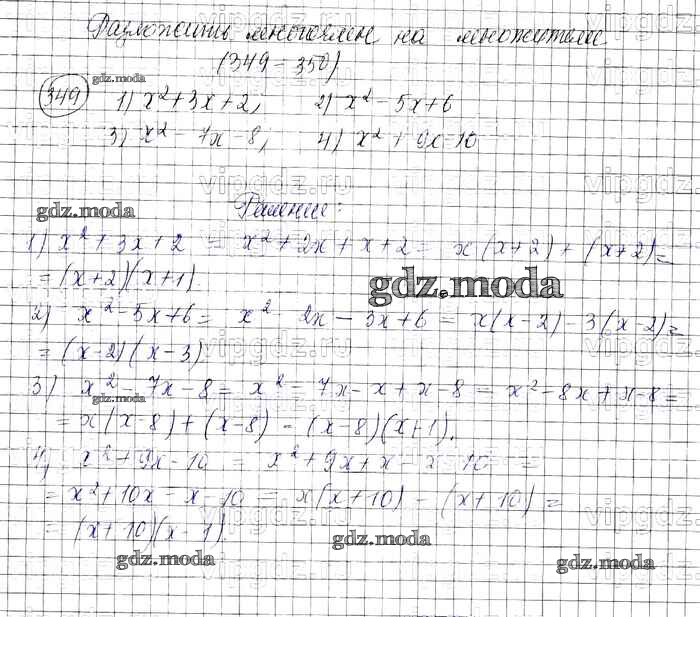 vipgdz.ru
Разложить многочлен на множители
(349-350)
vipgdz.ru
gdz.moda
349 1) x²+3x+2; 2) x² - 5x+6
3) x² - 7x - 8; 4) x² + 9x-10
vipgdz.ru vipgdz.ru
gdz.moda Решение:
1) x² + 3x + 2 = x² + 2x + x + 2 = x(x+2) + (x+2) =
= (x+2)(x+1)
gdz.moda
2) x² - 5x + 6 = x² 2x - 3x + 6 = x(x-2) - 3(x-2) =
= (x-2)(x-3)
vipgdz.ru vipgdz.ru
3) x² - 7x - 8 = x² - 7x - x + x - 8 = x² - 8x + x - 8 =
gdz.moda
= x(x-8) + (x-8) = (x-8)(x+1).
4) x² + 9x - 10 = x² + 9x + x - x - 10 =
= x² + 10x - x - 10 = x(x+10) - (x+10) =
vipgdz.ru vipgdz.ru
= (x+10)(x-1).
gdz.moda
gdz.moda
gdz.moda